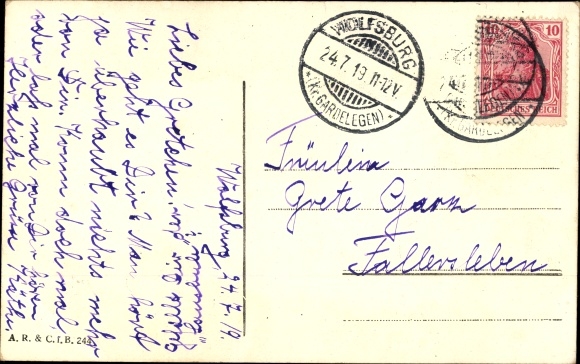 Wolfsburg 24.7.19.
Liebes Gretchen!
Wie geht es Dir? Man hört
ja überhaupt nichts mehr
von Dir. Komm doch mal,
oder laß mal von Dir hören
Herzliche Grüße
Fräulein
Grete Garz
Fallersleben
WOLFSBURG
24.7.19. 11-12V.
*(Kr. GARDELEGEN)*
10
A. R. & C. i. B. 244